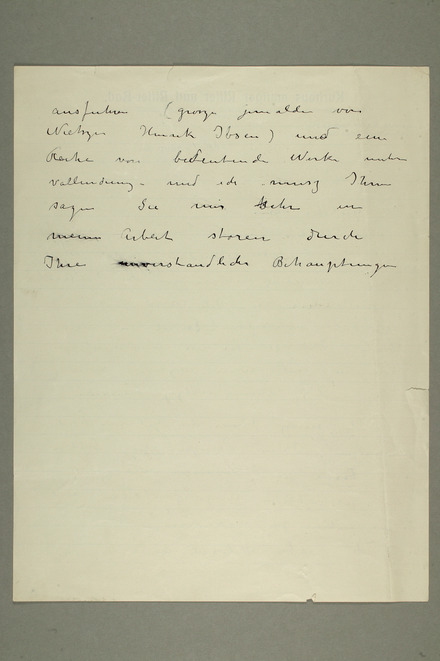 ausfuhren (grosze gemalde von
Nietzse Henrik Ibsen) und eine
Reihe von bedeutende Werke unter
vollendung - und ich musz Ihnen
sagen Sie mir sehr in
meine Arbeit storen durch
Ihre unverstandliche Behauptungen